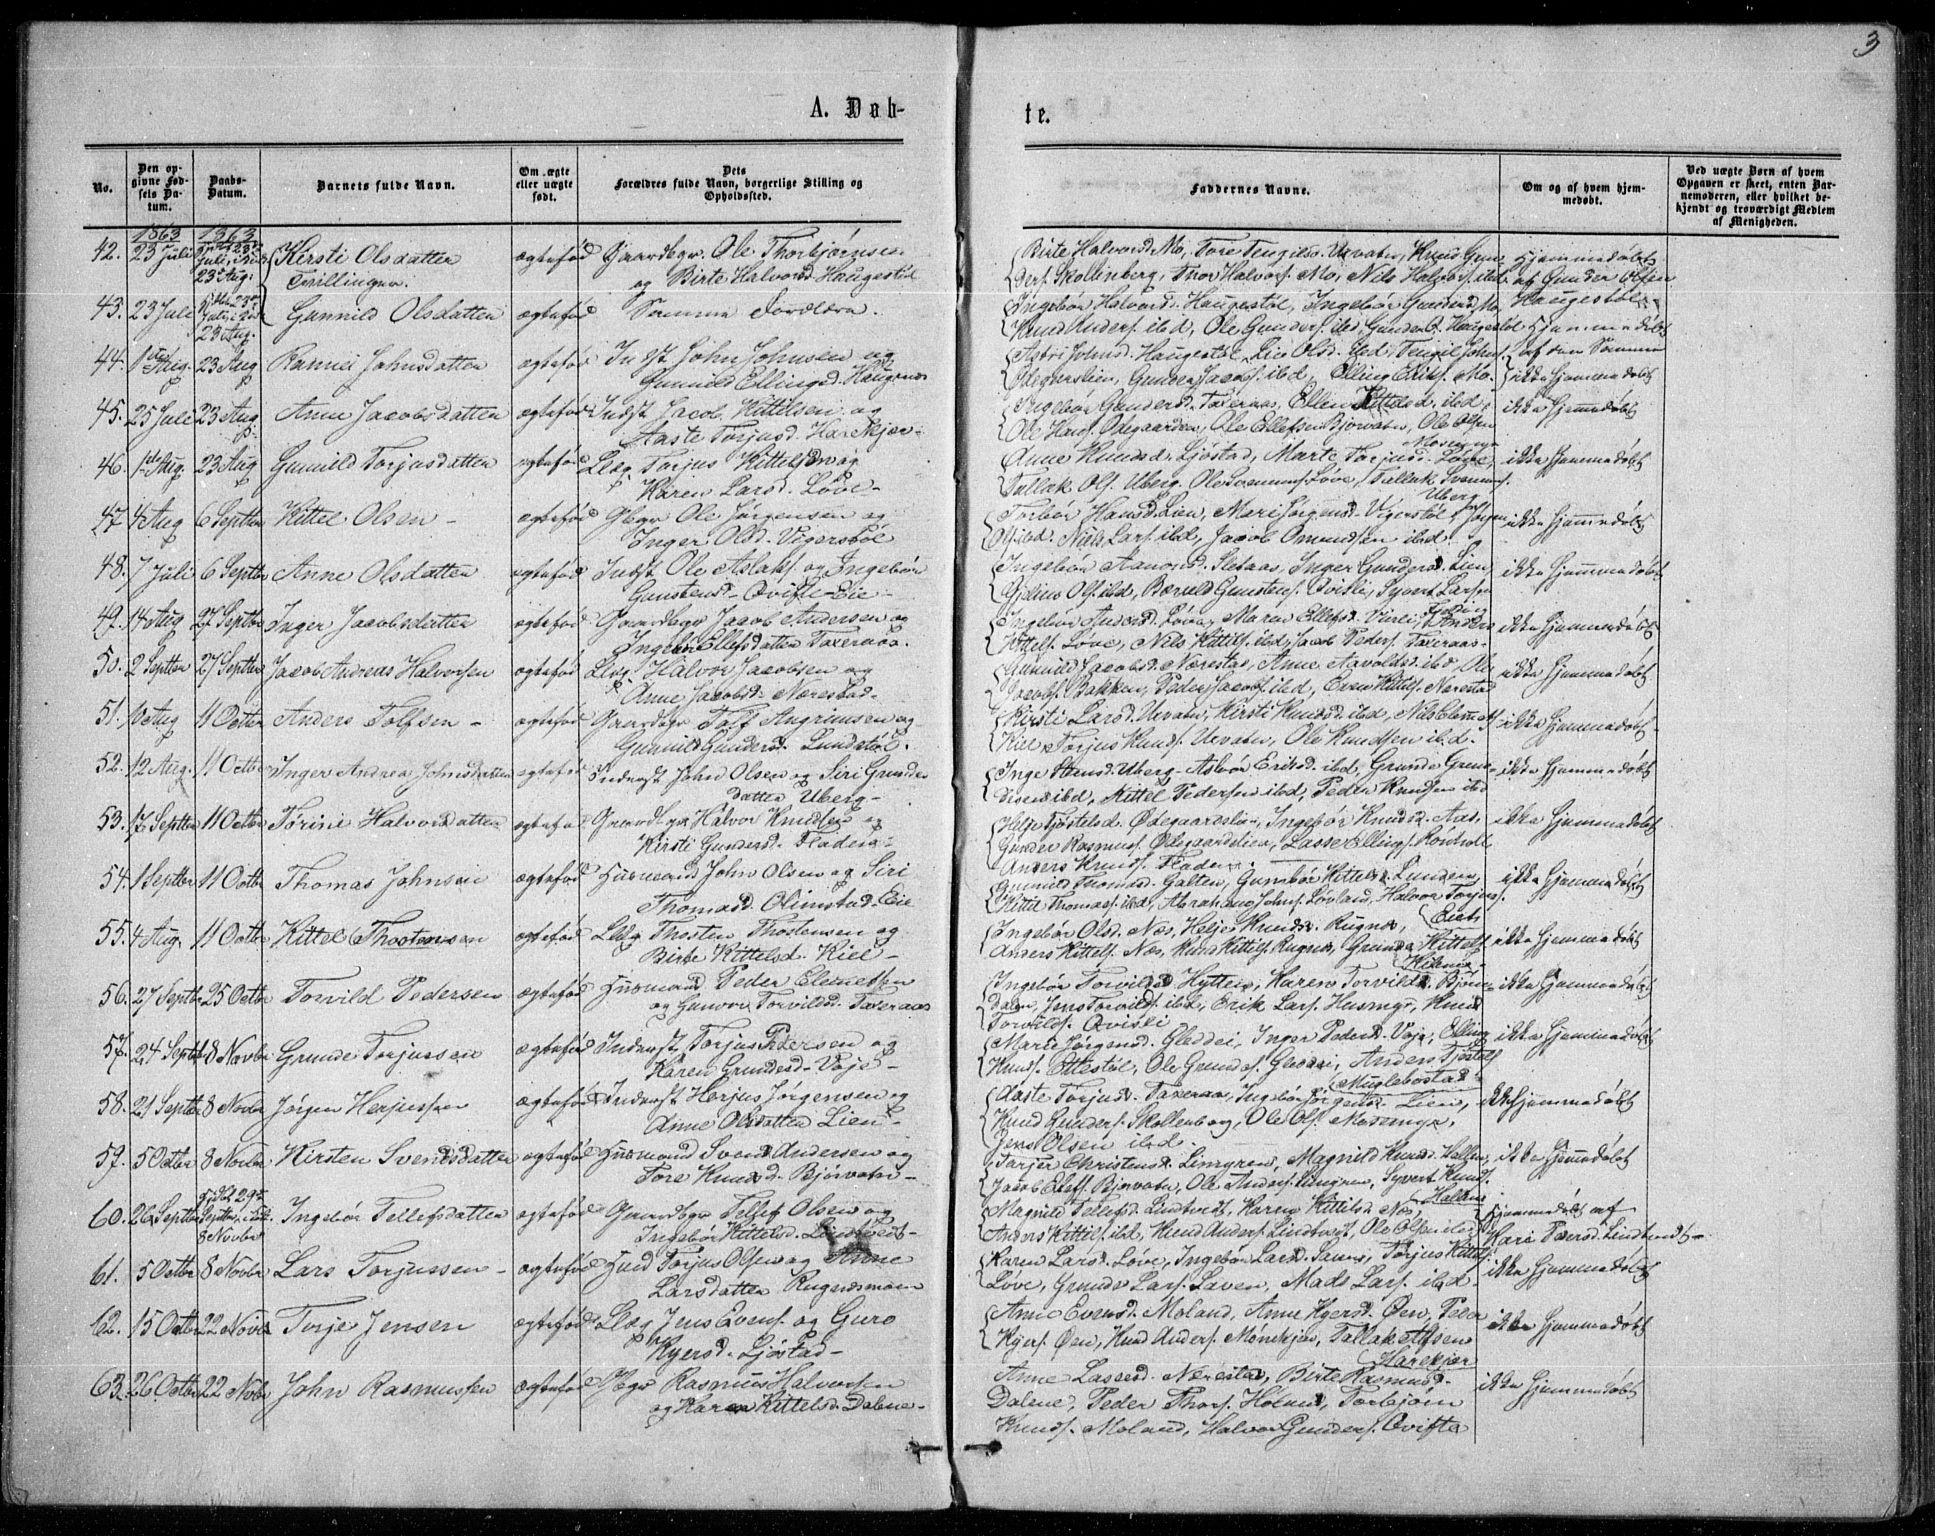 3
A. Døb-
te.
No.
Den opgivne Fødsels Datum.
Daabs-Datum.
Barnets fulde Navn.
Om ægte eller uægte født.
Dets Forældres fulde Navn, borgerlige Stilling og Opholdssted.
Faddernes Navne.
Om og af hvem hjemmedøbt.
Ved uægte Børn af hvem Opgaven er skeet, enten Barnemoderen, eller hvilket bekjendt og troværdigt Medlem af Menigheden.
1863 1863
42. 23 Juli 23 Aug: Kirsti Olsdatter Trillinger. ægtefød Gaardbgr Ole Thorbjørnsen
og Birte Halvorsd. Haugestøl
Birte Halvorsd. Mo, Tore Tengilsd. Urvatn, Knud Gun-
ders. Skollenberg, Thor Halvors. Mo, Nils Halvors. ibd.
Hjemmedøbt af Gunder Olsen Haugestøl
43. 23 Juli 23 Aug. Gunnild Olsdatter ægtefød Samme Forældre.
Ingebør Halvorsd. Haugestøl, Ingebør Gundersd. Mo
Knud Anders. ibd, Ole Gunders. ibd, Gunder O. Haugestøl
Hjemmedøbt af den Samme
44. 1ste Aug. 23 Aug Ramei Johnsdatter ægtefød Indst John Johnsen og
Gunnild Ellingsd. Haugenes
Astri Johnsd. Haugestøl, Liv Olsd. ibd, Tengil Johns.
Ødegaardslien, Gunder Jacobs. ibd, Elling Ellefs. Mo.
ikke Hjemmedøbt
45. 25 Juli 23 Aug Anne Jacobsdatter ægtefød Indst Jacob Kittelsen og
Aaste Torjusd. Harekjær
Ingebør Gundersd. Taxeraas, Ellen Kittelsd. ibd,
Ole Hans. Ødegaarden, Ole Ellefsen Bjorvatn, Ole Olsen
Mosemyr
ikke Hjemmedøbt
46. 1ste Aug. 23 Aug Gunnild Torjusdatter ægtefød Leilg Torjus Kittelsen og
Karen Larsd. Løve
Anne Knudsd. Ljøstad, Marte Torjusd. Løve,
Tallak Ols. Uberg, Ole Svennings. Løve, Tallak Svennings.
Uberg
ikke Hjemmedøbt
47. 4 Aug 6 Septbr Kittel Olsen ægtefød Gbgr Ole Jørgensen og
Inger Olsd. Vigerstøl
Torbør Hansd. Lien, Mari Jørgensd. Vigerstøl, Jørgen
Ols. ibd. Niels Lars. ibd, Jacob Omundsen ibd.
ikke Hjemmedøbt
48. 7 Juli 6 Septbr Anne Olsdatter ægtefød Indst Ole Aslaks. og Ingebør
Gunstensd. Qvifte Eie
Ingebør Aanonsd. Sletaas, Inger Gundersd. Lien,
Gjerulv Ols. ibd, Berulv Gunstens. Qvisli, Syvert Lars.
ikke Hjemmedøbt
49. 14 Aug 27 Septbr Inger Jacobsdatter ægtefød Gaardbgr Jacob Andersen og
Ingebør Ellefsdatter Taxeraas.
Ingebør Andersd. Løve, Maren Ellefsd. Virli, Anders
Kittels. Løve, Nils Kittils. ibd, Jacob Peders. Taxeraas
ikke Hjemmedøbt
50. 2 Septbr 27 Septbr Jacob Andreas Halvorsen ægtefød Leilg Halvor Jacobsen og
Anne Jacobsd. Nærestad
Gunnild Jacobsd. Nærestad, Anne Aavoldsd. ibd, Ole
Jacobs. Bakken, Peder Jacobs. ibd, Even Kittels. Nærestad
ikke Hjemmedøbt
51. 10 Aug 11 Octbr Anders Tolfsen ægtefød Gaardbgr Tolf Angrimsen og
Gunnild Gundersd. Lundstøl.
Kirsti Larsd. Urvatn, Kirsti Knudsd. ibd, Nils Clemets.
Kiel Torjus Knuds. Urvatn, Ole Knudsen ibd.
ikke Hjemmedøbt
52. 12 Aug. 11 Octbr Inger Andrea Johnsdatter ægtefød Inderst John Olsen og Siri Grundes
datter Uberg
Inge Hansd. Uberg, Asbør Eriksd. ibd, Grunde Grun-
desen ibd, Kittel Pedersen ibd, Peder Knudsen ibd
ikke Hjemmedøbt
53. 17 Septbr 11 Octbr Tørine Halvorsdatter ægtefød Gaardbgr Halvor Knudsen og
Kirsti Gundersd. Fladen
Helje Tjøstelsd. Ødegaardslien, Ingebør Knudsd. Aas
Gunder Rasmus. Ødegaardslien, Lasse Ellings. Rønholt
Anders Knuds. Fladen
ikke Hjemmedøbt
54. 1 Septbr 11 Octbr Thomas Johnsen ægtefød Husmand John Olsen og Siri
Thomasd. Olimstad Eie
Gunnild Thomasd. Galten, Gunbør Kittelsd. Lunden,
Kittil Thomas. ibd, Abraham Johns. Løvland, Halvor Torjus.
Eiet
ikke Hjemmedøbt
55. 4 Aug. 11 Octbr Kittel Thostensen ægtefød Leilg Thosten Thostensen og
Birte Kittelsd. Kiel
Ingebør Olsd. Næs, Helje Knudsd. Rugnes,
Anders Kittels. Næs, Knud Kittels. Rugnes, Grunde Kittels.
ikke Hjemmedøbt
56. 27 Septbr 25 Octbr Torvild Pedersen ægtefød Husmand Peder Clemetsen
og Gunvor Torvildsd. Taxeraas
Ingebør Torvildsd. Hytten, Karen Torvildsd. Bjønn-
dalen, Jens Torvilds. ibd, Erik Lars. Husmyr, Knud
Torvilds. Qvisli
ikke Hjemmedøbt
57. 24 Septbr 8 Novbr Grunde Torjussen ægtefød Inderst Torjus Pedersen og
Karen Grundesd. Voje
Marie Jørgensd. Gleddei, Inger Pedersd. Voje, Elling
Knuds. Ottestøl, Ole Grundes. Gleddei, Anders Tjøstels.
Muglebostad
ikke Hjemmedøbt
58. 21 Septbr 8 Novbr Jørgen Herjussen ægtefød Inderst Herjus Jørgensen og
Anne Olsdatter Lien
Aaste Torjusd. Taxeraas, Ingebør Jørgensd. Lien,
Knud Gunders. Skollenborg, Ole Ols. Mosemyr,
Jens Olsen ibd.
ikke Hjemmedøbt
59. 5 Octbr 8 Novbr Kirsten Svendsdatter ægtefød Husmand Svend Andersen og
Tore Knudsd. Bjorvatn
Torjer Christensd. Limyren, Magnild Knudsd. Halten,
Jacob Ellefs. Bjorvatn, Ole Anders. Limyren, Syvert Knuds.
Halten
ikke Hjemmedøbt
60. 26 Septbr 8 Novbr Ingebør Tellefsdatter ægtefød Gaardbgr Tellef Olsen og
Ingebør Kittelsd. Lindtvedt
Magnild Tellefsd. Lindtvedt, Karen Kittelsd. Næs,
Anders Kittils. ibd, Knud Anders. Lindtvedt, Ole Olsen ibd
Hjemmedøbt af
Kari Pedersd. Lindtvedt
61. 5 Octbr 8 Novbr Lars Torjussen ægtefød Ind Torjus Olsen og Anne
Larsdatter Rugnesmoen
Karen Larsd. Løve, Ingebør Larsd. Laven, Torjus Kittels.
Løve, Grunde Lars. Laven, Mads Lars. ibd
ikke Hjemmedøbt
62. 15 Octbr 22 Novbr Torje Jensen ægtefød Leilg Jens Evens. og Guro
Kyersd. Ljøstad
Anne Evensd. Moland, Anne Kyersd. Øen, Peder
Kyers. Øen, Knud Anders. Mørekjær, Tallak Alfsen
Harekjær
ikke Hjemmedøbt
63. 26 Octbr 22 Novbr John Rasmussen ægtefød Gbgr Rasmus Halvorsen
og Karen Kittelsd. Dalene
Anne Lassesd. Nærestad, Birte Rasmusd.
Dalene, Peder Thors. Holand, Torbjørn
Knuds. Moland, Halvor Gunders. Qvifte
ikke Hjemmedøbt